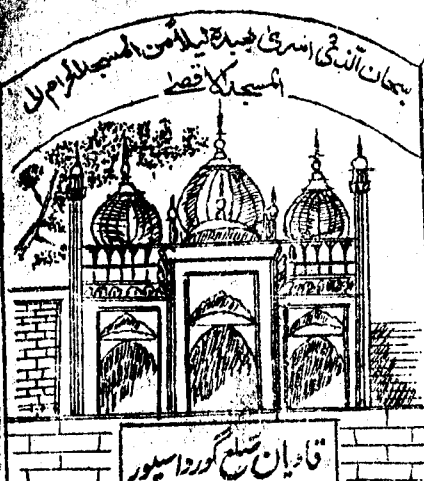 سبحان الذی اسریٰ بعبدہ لیلاً من المسجد الحرام الی
المسجد الاقصٰے
قادیان ضلع گورداسپور